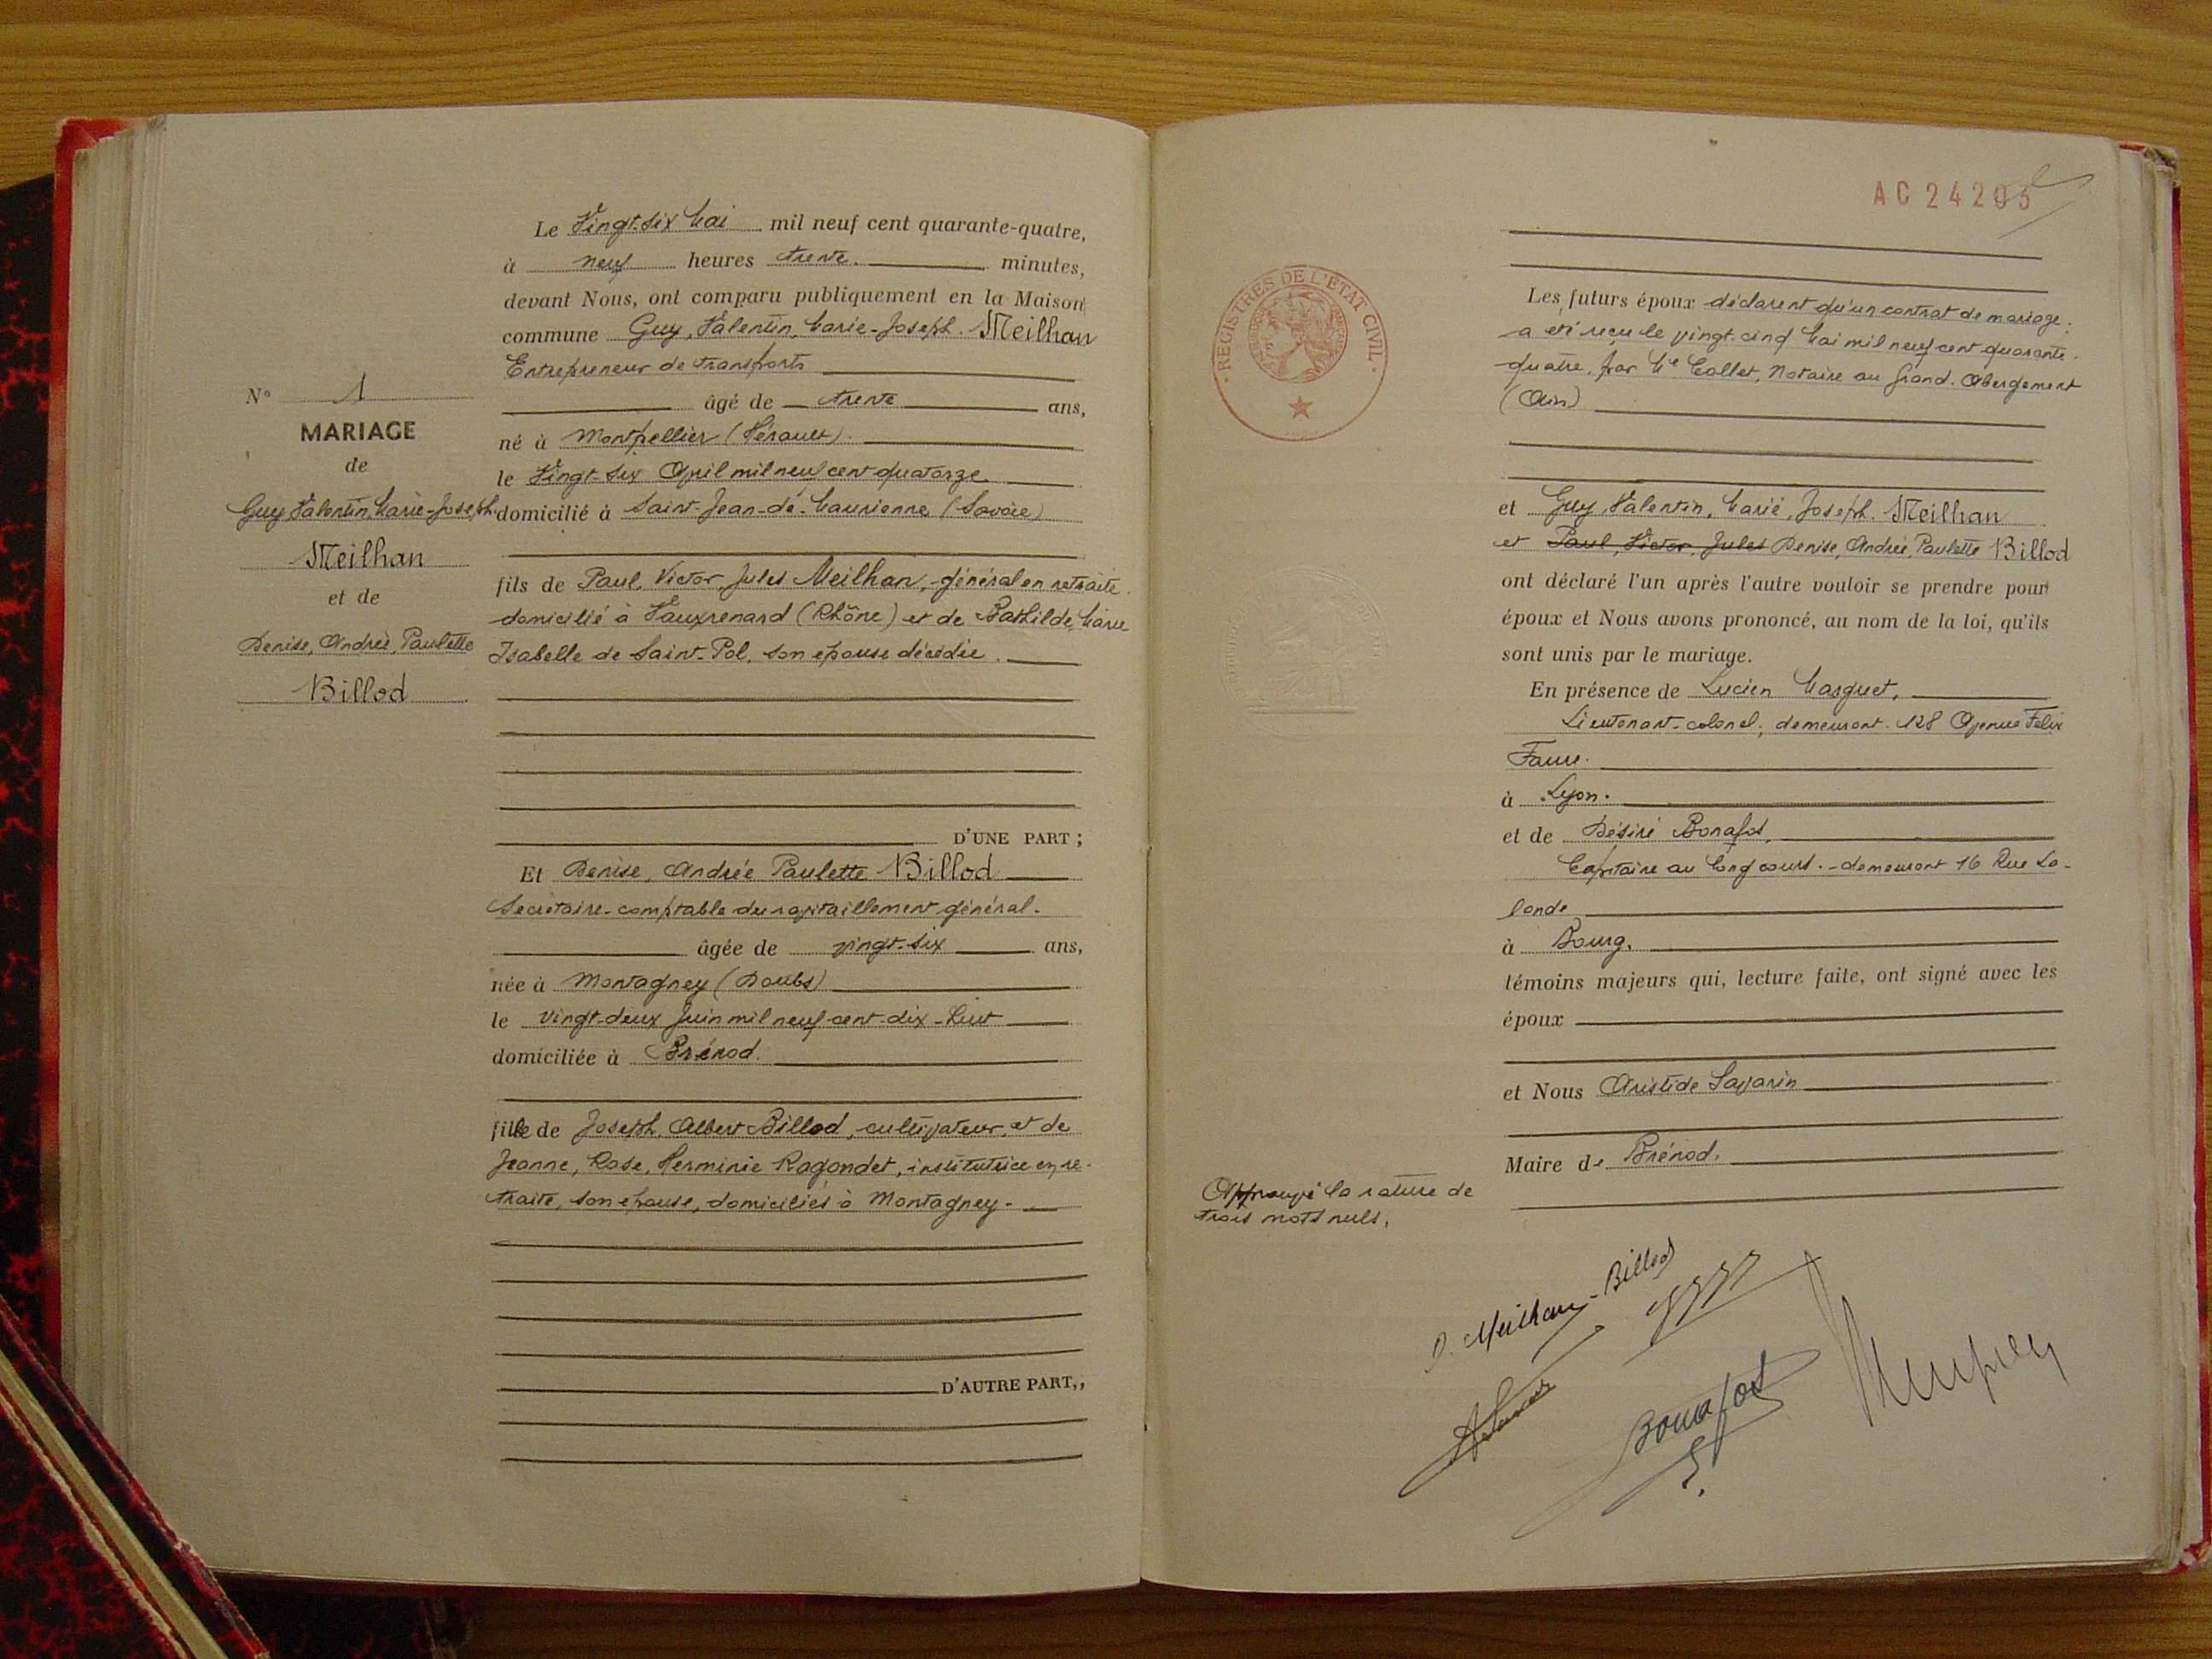 Le Vingt-six Mai mil neuf cent quarante-quatre,
à neuf heures trente. minutes,
devant Nous, ont comparu publiquement en la Maison
commune Guy, Valentin, Marie-Joseph. Meilhan
Entrepreneur de transports
âgé de trente ans,
né à Montpellier (Hérault).
le Vingt-six Avril mil neuf cent quatorze
domicilié à Saint-Jean-de-Maurienne (Savoie)
fils de Paul, Victor, Jules Meilhan, général en retraite.
domicilié à Vauxrenard (Rhône) et de Bathilde, Marie
Isabelle de Saint-Pol, son épouse décédée.
D'UNE PART ;
Et Denise, Andrée Paulette Billod
Secrétaire-comptable du ravitaillement général.
âgée de vingt-six ans,
née à Montagney (Doubs)
le vingt-deux Juin mil neuf cent-dix-huit
domiciliée à Brénod.
fille de Joseph, Albert Billod, cultivateur, et de
Jeanne, Rose, Herminie Ragondet, institutrice en re-
traite, son épouse, domiciliés à Montagney.
D'AUTRE PART,,
N° 1
MARIAGE
de
Guy Valentin, Marie-Joseph.
Meilhan
et de
Denise, Andrée, Paulette
Billod
AC 24205
REGISTRES DE L'ÉTAT CIVIL
Les futurs époux déclarent qu'un contrat de mariage
a été reçu le vingt-cinq Mai mil neuf cent quarante-
quatre, par Me Collet, Notaire au Grand-Abergement
(Ain)
et Guy, Valentin, Marie, Joseph. Meilhan
et Paul, Victor, Jules Denise, Andrée, Paulette Billod
ont déclaré l'un après l'autre vouloir se prendre pour
époux et Nous avons prononcé, au nom de la loi, qu'ils
sont unis par le mariage.
En présence de Lucien Masquet,
Lieutenant-colonel, demeurant 128 Avenue Félix
Faure.
à Lyon.
et de Désiré Bonafos,
Capitaine au long cours. - demeurant 16 Rue La-
lande
à Bourg.
témoins majeurs qui, lecture faite, ont signé avec les
époux
et Nous Aristide Savarin
Maire de Brénod.
Approuvé la rature de
trois mots nuls.
D. Meilhan-Billod
Bonafos